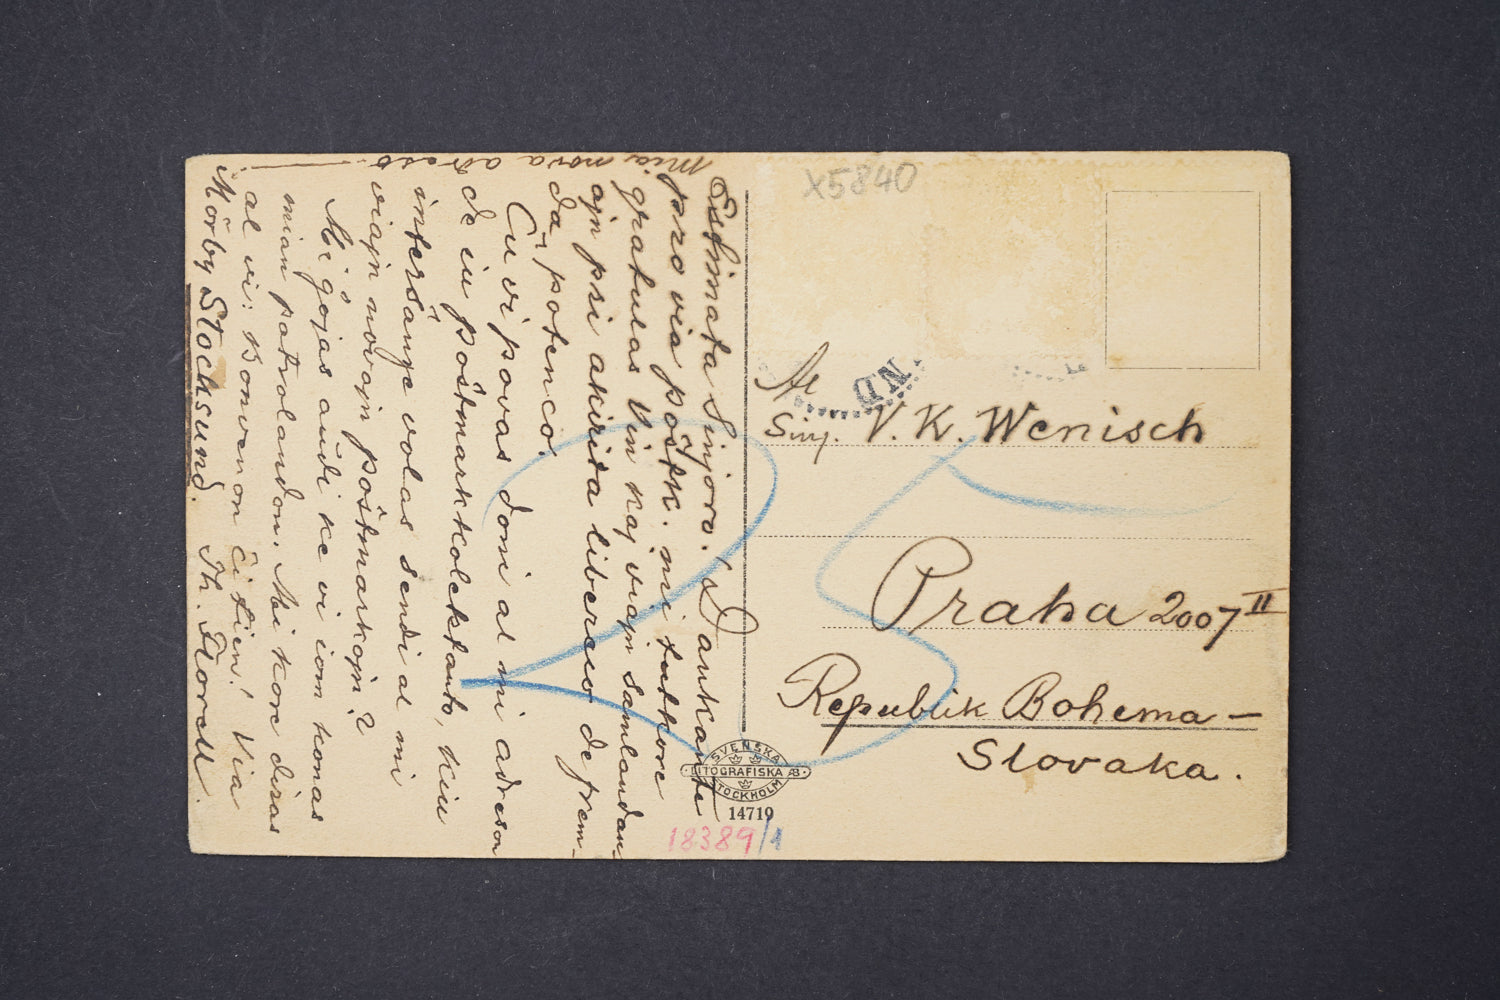 Estimata Sinjoro! Dankante
pro via poŝtk. mi tutkore
gratulas Vin kaj viajn samlandan-
ojn pri akirita libereco de frem-
da potenco.
Ĉu vi povas doni al mi adreson
de iu poŝtmarkkolektanto, kiu
interŝanĝe volas sendi al mi
viajn novajn poŝtmarkojn?
Mi ĝojas aŭdi ke vi iom konas
mian patrolandon. Mi kore diras
al vi: Bonvenon ĉi tien! Via
Mörby Stocksund. Th. Florell.
mia nova adreso
X5840
ND
Al
Sinj. V. K. Wenisch
Praha 2007 II
Republik Bohema-
Slovaka.
SVENSKA
LITOGRAFISKA AB
STOCKHOLM
14719
18389/1